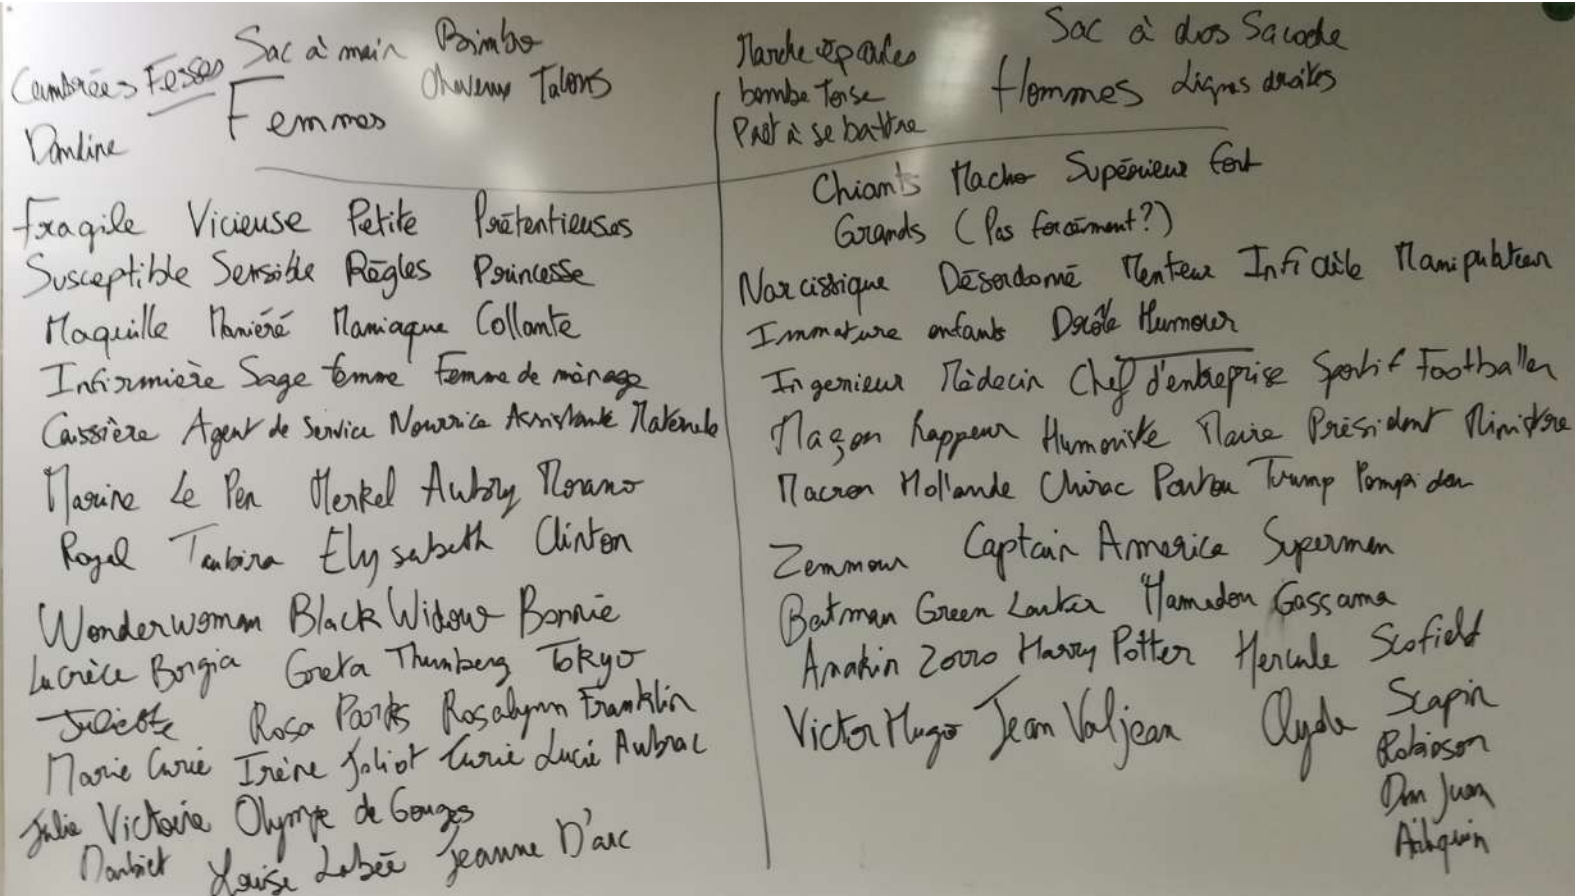 Cambrées Fesses Sac à main Bimbo
Cheveux Talons
Femmes
Dandine
Fragile Vicieuse Petite Prétentieuses
Susceptible Sensible Règles Princesse
Maquille Maniéré Maniaque Collante
Infirmière Sage femme Femme de ménage
Caissière Agent de Service Nourrice Assistante Maternele
Marine Le Pen Merkel Aubry Morano
Royal Taubira Elysabeth Clinton
Wonderwoman Black Widow Bonnie
Lucrèce Borgia Greta Thunberg Tokyo
Juliette Rosa Parks Rosalynn Franklin
Marie Curie Irène Joliot Curie Lucie Aubrac
Julie Victoire Olympe de Gouges
Daubiet Louise Labée Jeanne D'arc
Marche épaules
bombe torse
Prêt à se battre
Sac à dos Sacoche
Hommes Lignes droites
Chiants Macho Supérieur fort
Grands (Pas forcément?)
Narcissique Désordonné Menteur Infidèle Manipulateur
Immature enfants Drôle Humour
Ingenieur Médecin Chef d'entreprise Sportif Footballer
Maçon Rappeur Humoriste Maire Président Ministre
Macron Hollande Chirac Poutou Trump Pompidou
Zemmour Captain America Supermen
Batman Green Lanter Mamadou Gassama
Anakin Zorro Harry Potter Hercule Scofield
Victor Hugo Jean Valjean Clyde Scapin
Robinson
Dom Juan
Arlequin